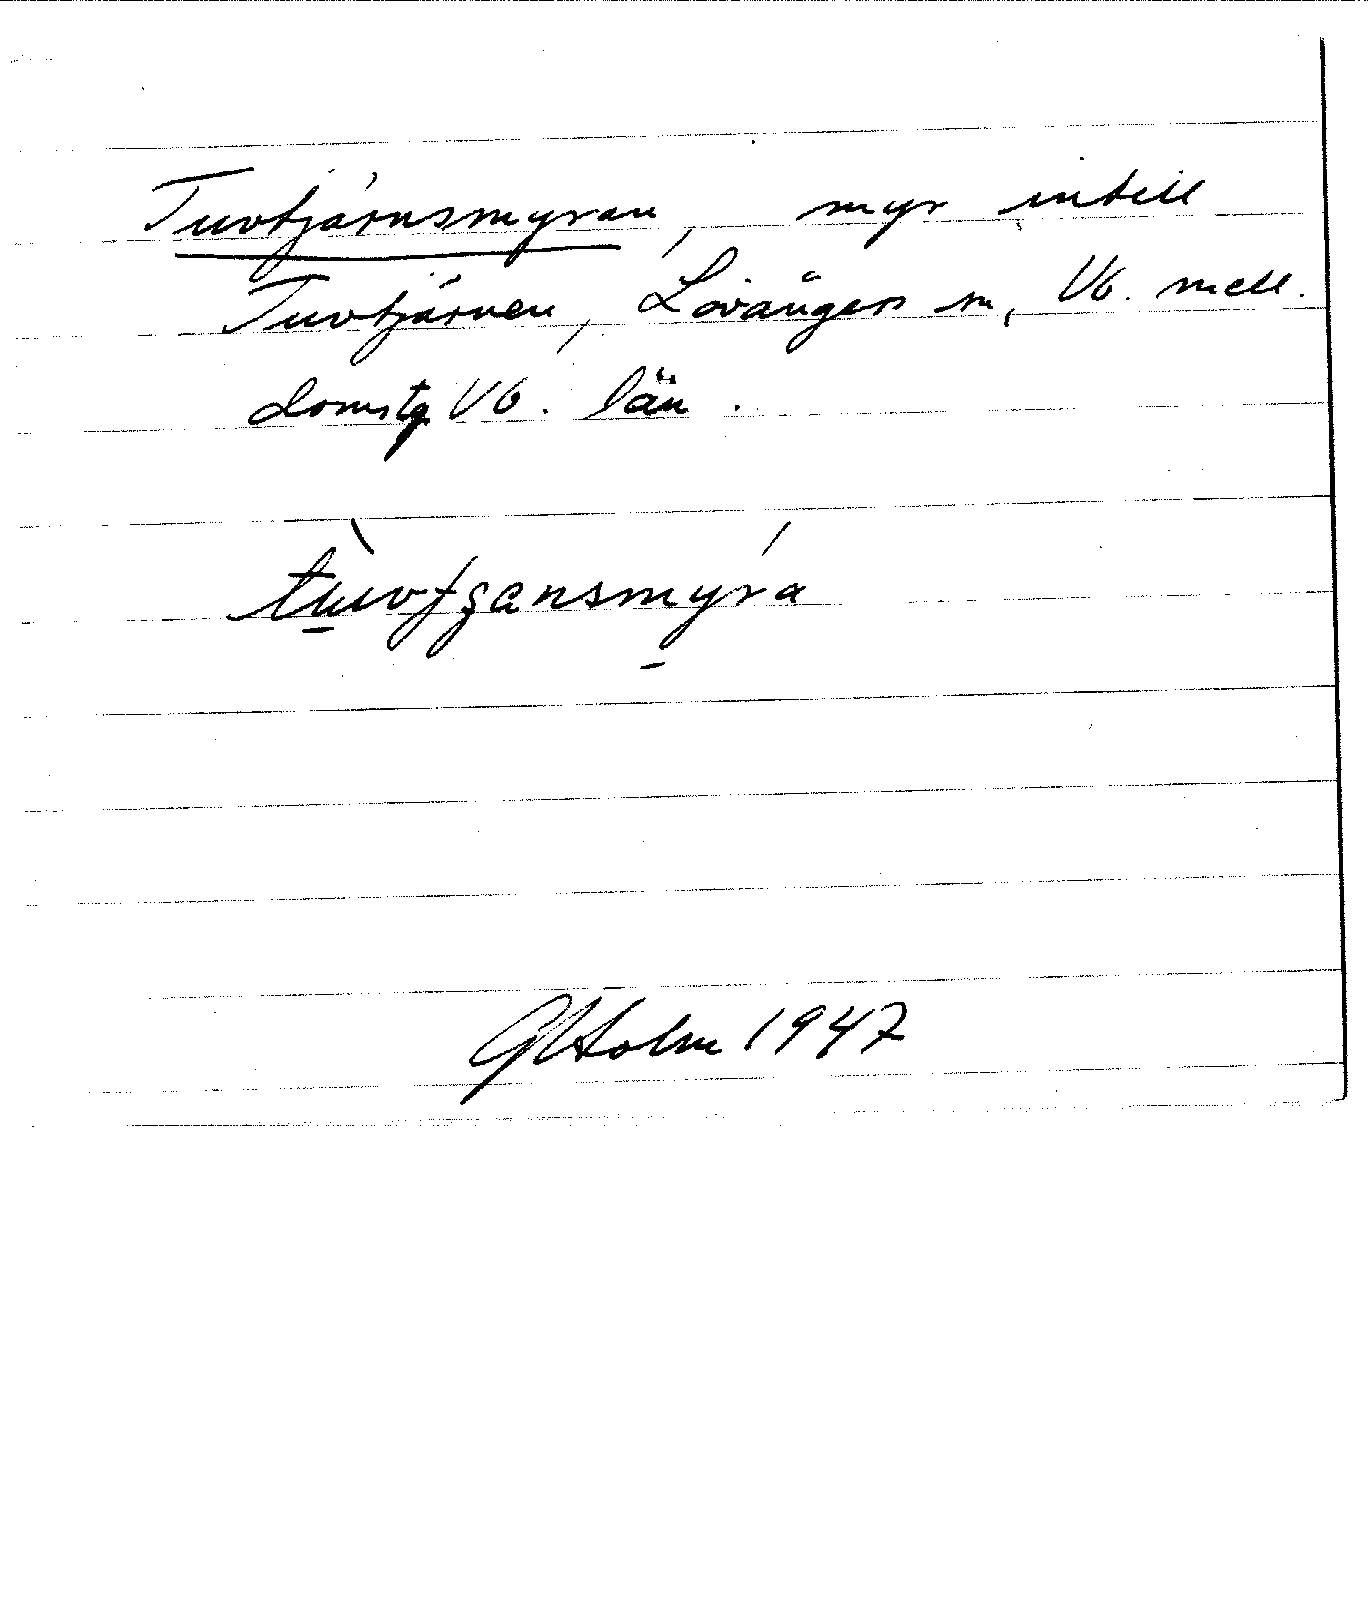 Tuvtjärnsmyran, myr intill
Tuvtjärnen, Lövångers sn, Vb. mell.
domstg Vb. län.
G Holm 1947